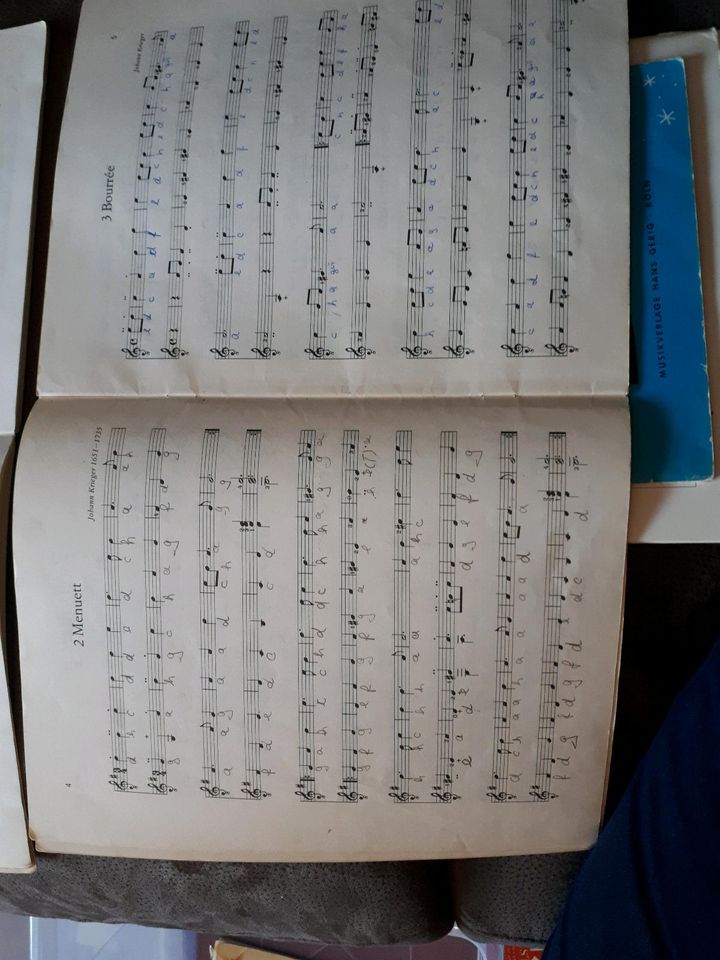 4
2 Menuett
Johann Krieger 1651–1735
d h c d d e d c h a a h
g a h g c h a g f d g
a a g a a d c h a g g
f a e d c c d
g a h e c h d d c h h a g g a
g f g e f g f g a e a h
h h c h h a a a h c
e a d e d g e f d g
d c h a a h a a a d a
f d g f d g f d e d c d
5
3 Bourrée
Johann Krieger
e d c a d f e d c h e d c h a gis a
a e d c a a f e d c h e d
c h a gis a a c h c d e f h a
h c d e e g a d c h a c e d
c a d f e d c h e d c h a a gis a a
MUSIKVERLAGE HANS GERIG · KÖLN